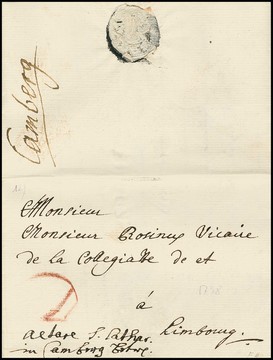 Camberg
Monsieur
Monsieur Rosinus Vicaire
de la Collegiatte de et
à
Limbourg.
altare S. Cathar.
in Camberg